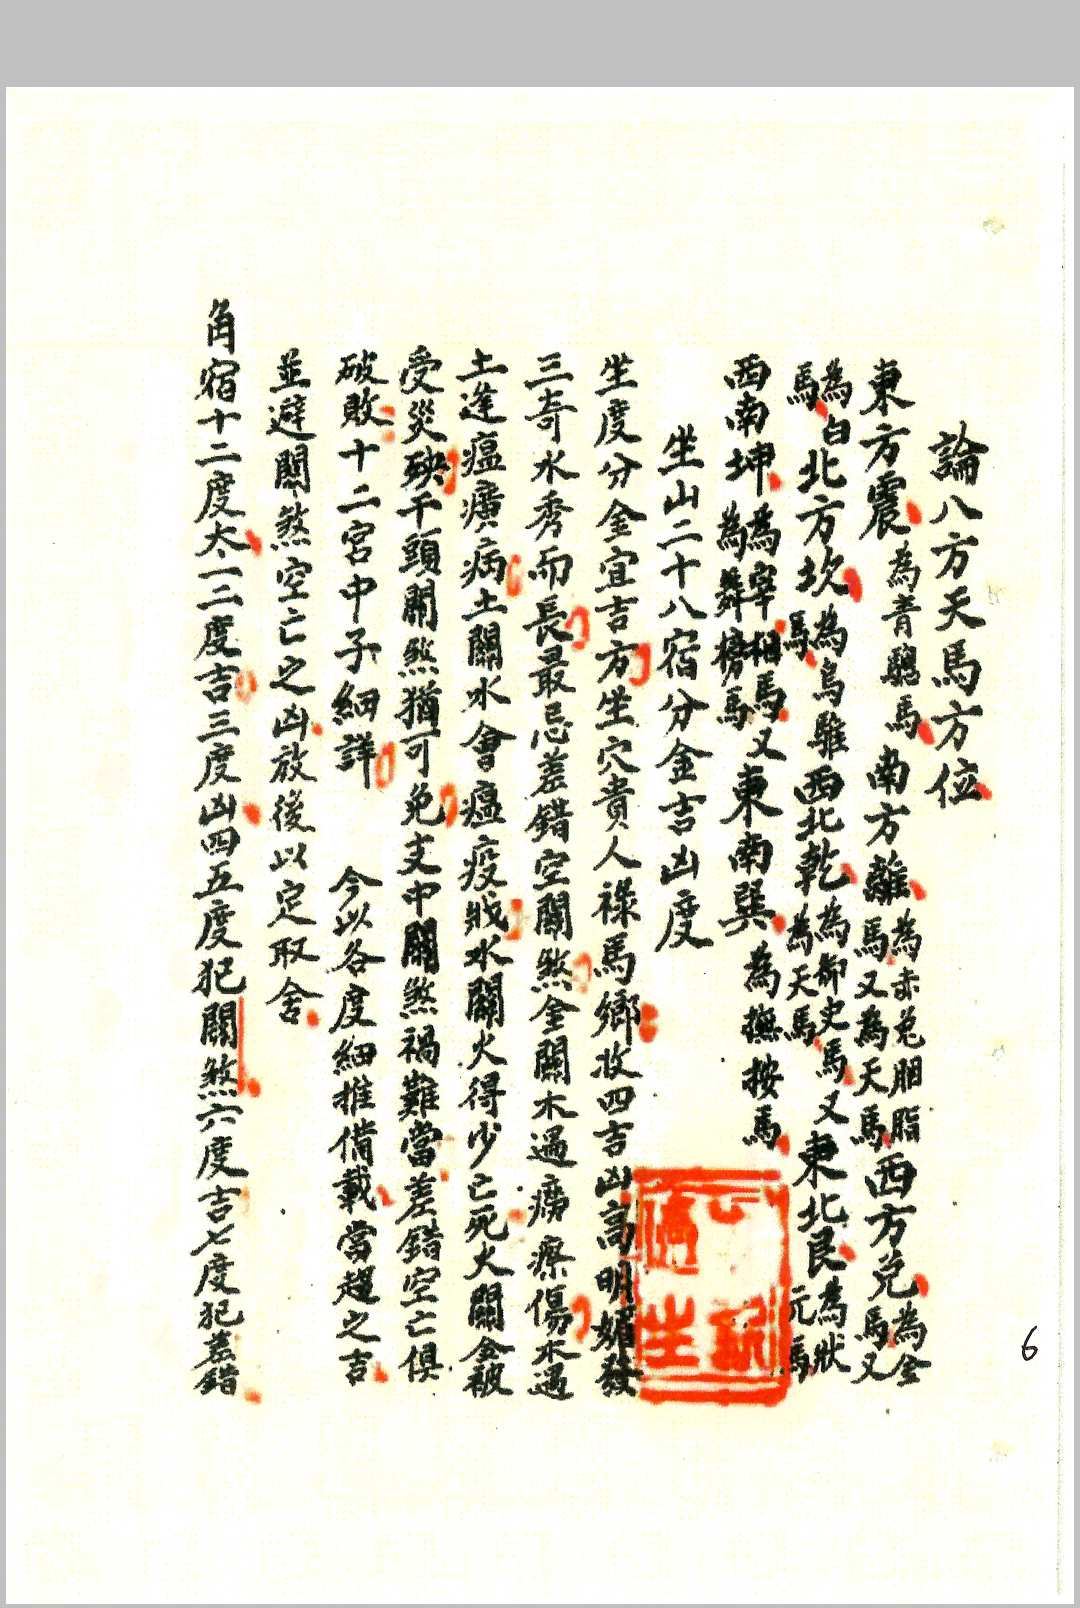 論八方天馬方位
東方震為青驄馬南方離為赤兎胭脂馬又為天馬西方兌為金馬又
為白馬北方坎為烏騅馬西北乾為御史馬為天馬又東北艮為狀元馬
西南坤為宰相馬為舞榜馬又東南巽為撫按馬
坐山二十八宿分金吉凶度
坐度分金宜吉方坐穴貴人祿馬鄉收四吉凶高明媚發
三奇水秀而長最忌差錯空關煞金關木過癆瘵傷木過
土逢瘟癀病土關水會瘟疫戕水關火得少亡死火關金被
受災殃干頭關煞猶可免支中關煞禍難當差錯空亡俱
破敗十二宮中子細詳 今以各度細推備載當趨之吉
並避關煞空亡之凶放後以定取舍
角宿十二度太一二度吉三度凶四五度犯關煞六度吉七度犯差錯
6